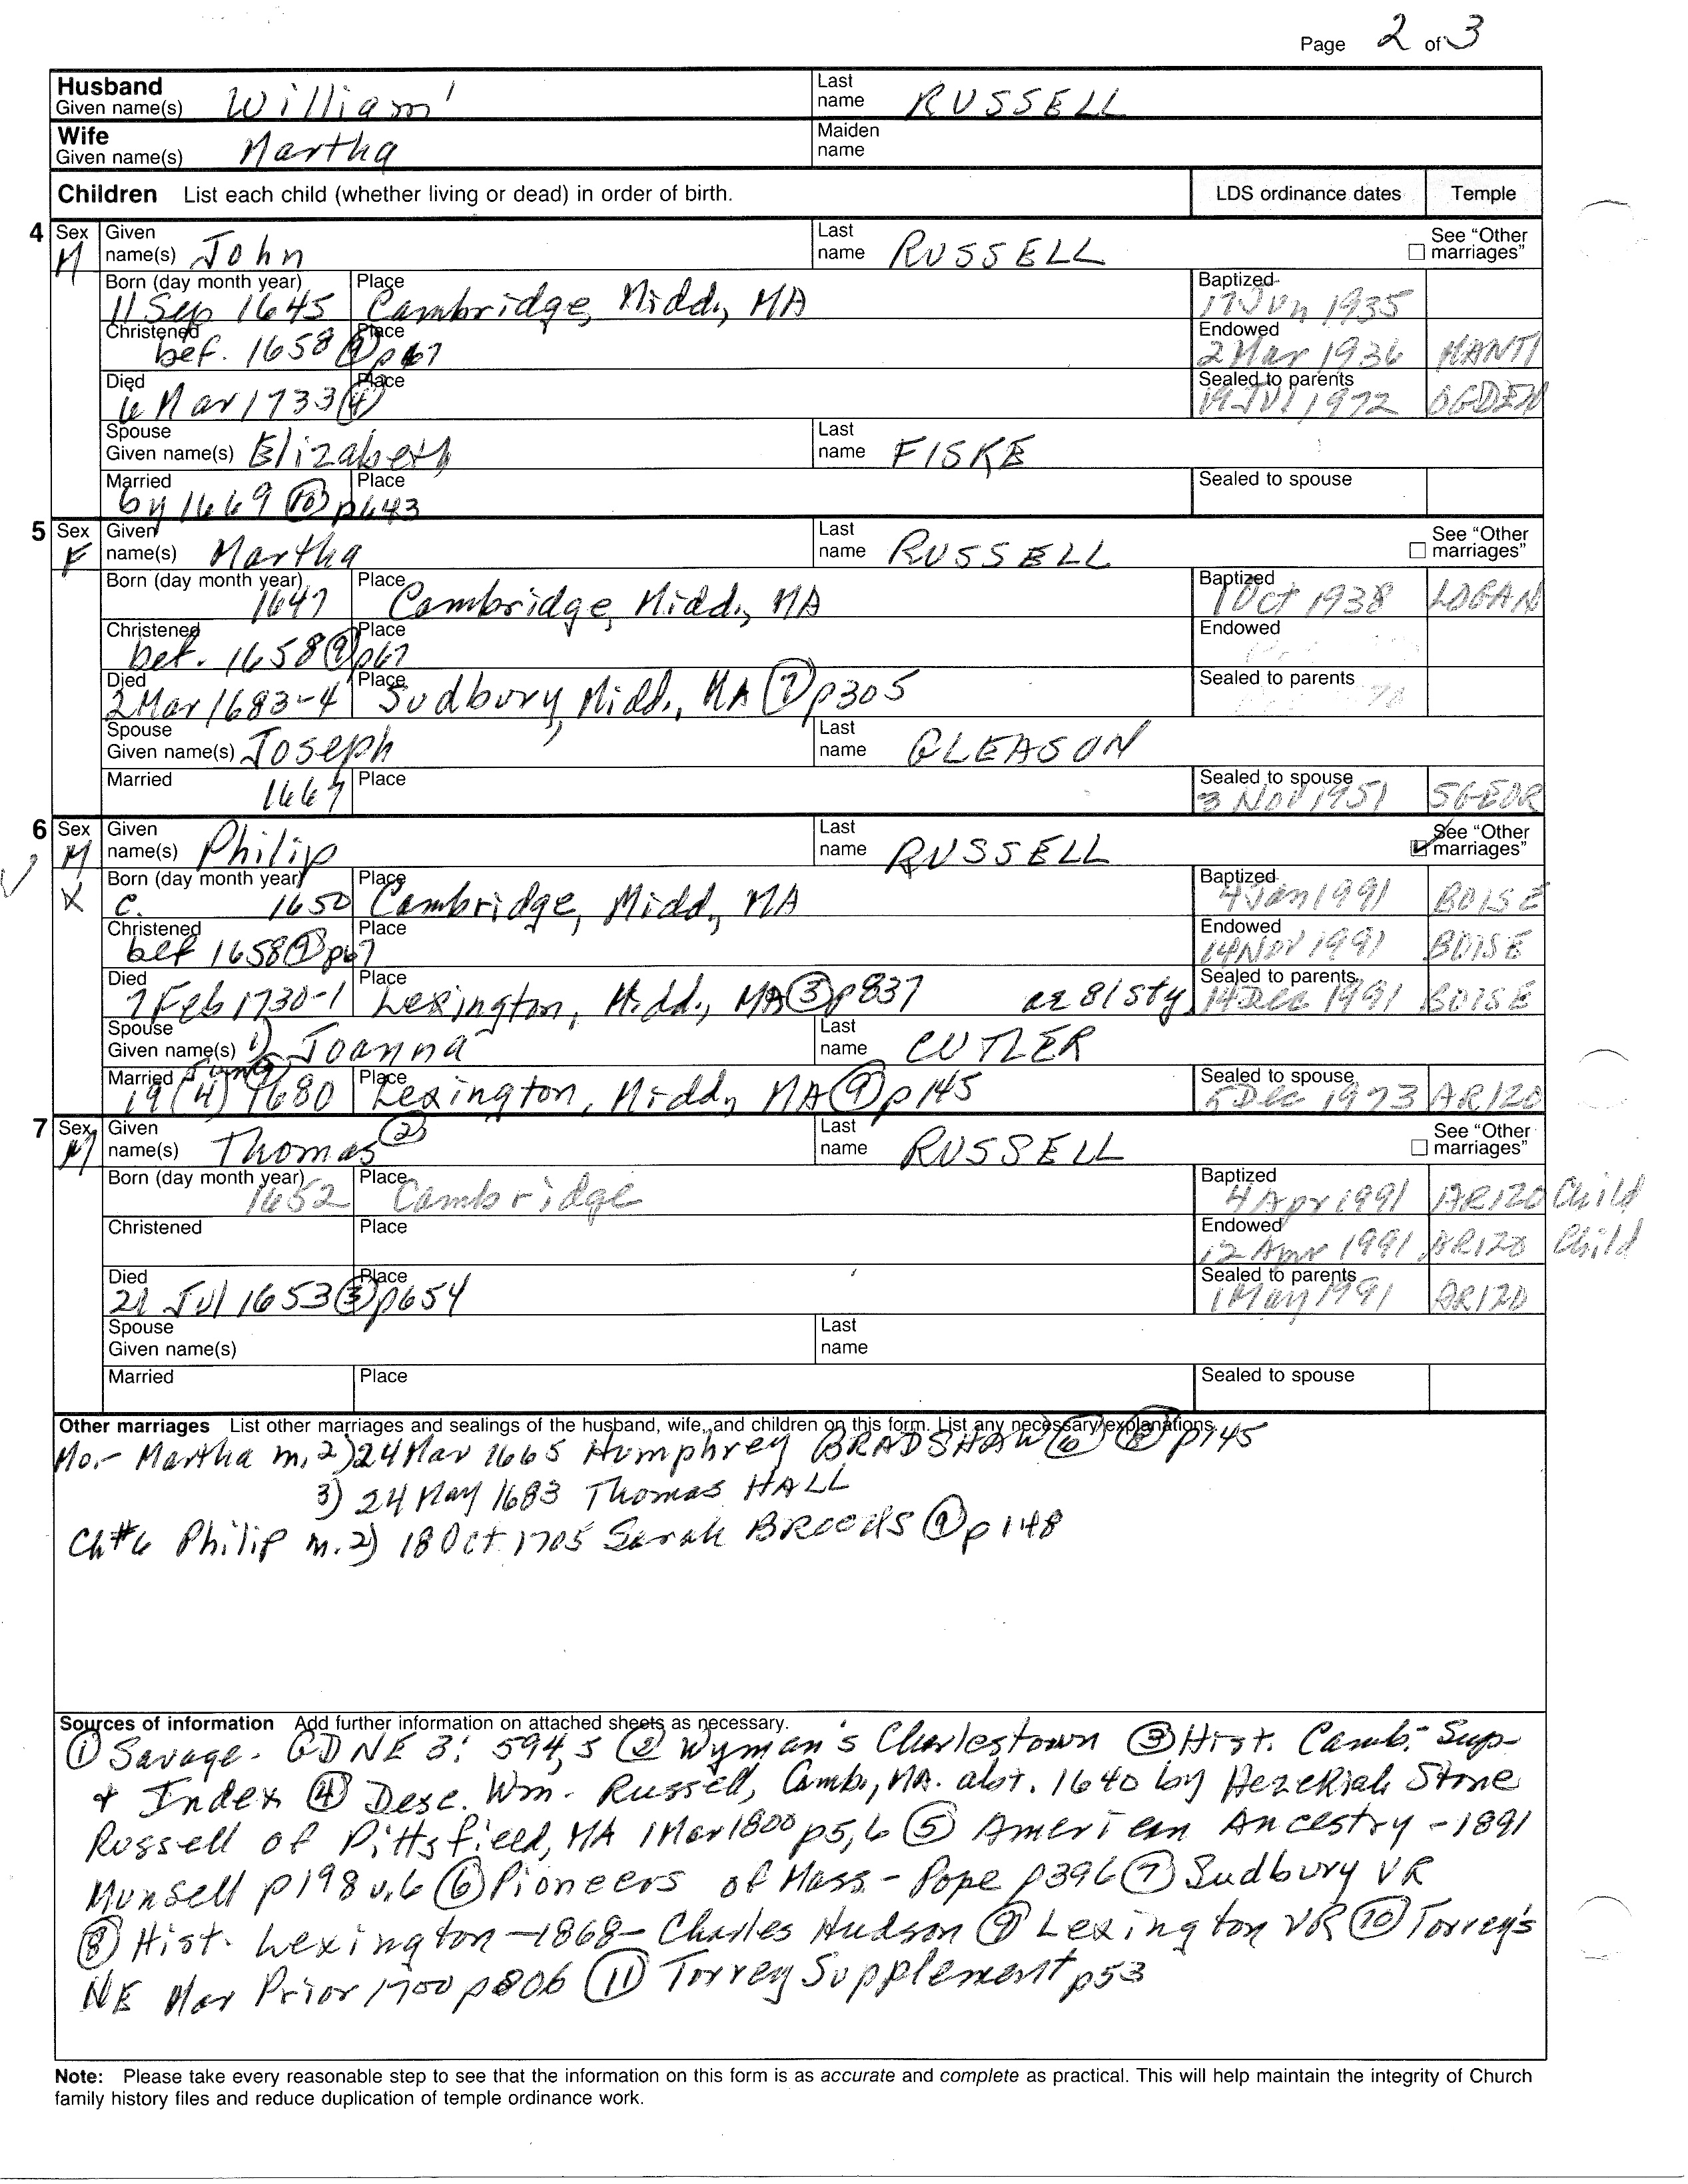 Page 2 of 3
Husband Given name(s) William Last name RUSSELL
Wife Given name(s) Martha Maiden name
Children List each child (whether living or dead) in order of birth. LDS ordinance dates Temple
4 Sex M Given name(s) John Last name RUSSELL See "Other marriages"
Born (day month year) 11 Sep 1645 Place Cambridge, Midd., MA Baptized 17 Jun 1935
Christened bef. 1658 (9) p67 Place Endowed 2 Mar 1936 MANTI
Died 6 Mar 1733 (4) Place Sealed to parents 19 JUl 1972 OGDEN
Spouse Given name(s) Elizabeth Last name FISKE
Married by 1669 (10) p643 Place Sealed to spouse
5 Sex F Given name(s) Martha Last name RUSSELL See "Other marriages"
Born (day month year) 1647 Place Cambridge, Midd., MA Baptized 1 Oct 1938 LOGAN
Christened bef. 1658 (9) p67 Place Endowed
Died 2 Mar 1683-4 Place Sudbury, Midd., MA (7) p305 Sealed to parents
Spouse Given name(s) Joseph Last name GLEASON
Married Place Sealed to spouse 3 Nov 1951 SGEOR
6 Sex M X Given name(s) Philip Last name RUSSELL See "Other marriages"
Born (day month year) c. 1650 Place Cambridge, Midd, MA Baptized 4 Jan 1991 BOISE
Christened bef 1658 (9) p67 Place Endowed 14 Nov 1991 BOISE
Died 7 Feb 1730-1 Place Lexington, Midd., MA (3) p837 ae 81 sty Sealed to parents 14 Dec 1991 BOISE
Spouse Given name(s) 1) Joanna Last name CUTLER
Married 19 (4) 1680 Place Lexington, Midd, MA (9) p145 Sealed to spouse 5 Dec 1973 ARIZO
7 Sex M Given name(s) Thomas (2) Last name RUSSELL See "Other marriages"
Born (day month year) 1652 Place Cambridge Baptized 4 Apr 1991 ARIZO Child
Christened Place Endowed 12 Apr 1991 ARIZO Child
Died 21 Jul 1653 (3) p654 Place Sealed to parents 1 May 1991 ARIZO
Spouse Given name(s) Last name
Married Place Sealed to spouse
Other marriages List other marriages and sealings of the husband, wife, and children on this form. List any necessary explanations.
Mo.- Martha m. 2) 24 Mar 1665 Humphrey BRADSHAW (6) (8) p145
3) 24 May 1683 Thomas HALL
Ch#6 Philip m. 2) 18 Oct 1705 Sarah BROOKS (9) p148
Sources of information Add further information on attached sheets as necessary.
(1) Savage - GDNE 3: 594,5 (2) Wyman's Charlestown (3) Hist. Camb.- Sup-
+ Index (4) Desc. Wm. Russell, Camb., MA. abt. 1640 by Hezekiah Stone
Russell of Pittsfield, MA 1 Mar 1800 p5,6 (5) American Ancestry - 1891
Munsell p198 v.6 (6) Pioneers of Mass - Pope p396 (7) Sudbury VR
(8) Hist. Lexington - 1868 - Charles Hudson (9) Lexington VR (10) Torrey's
NE Mar Prior 1700 p806 (11) Torrey Supplement p53
Note: Please take every reasonable step to see that the information on this form is as accurate and complete as practical. This will help maintain the integrity of Church
family history files and reduce duplication of temple ordinance work.